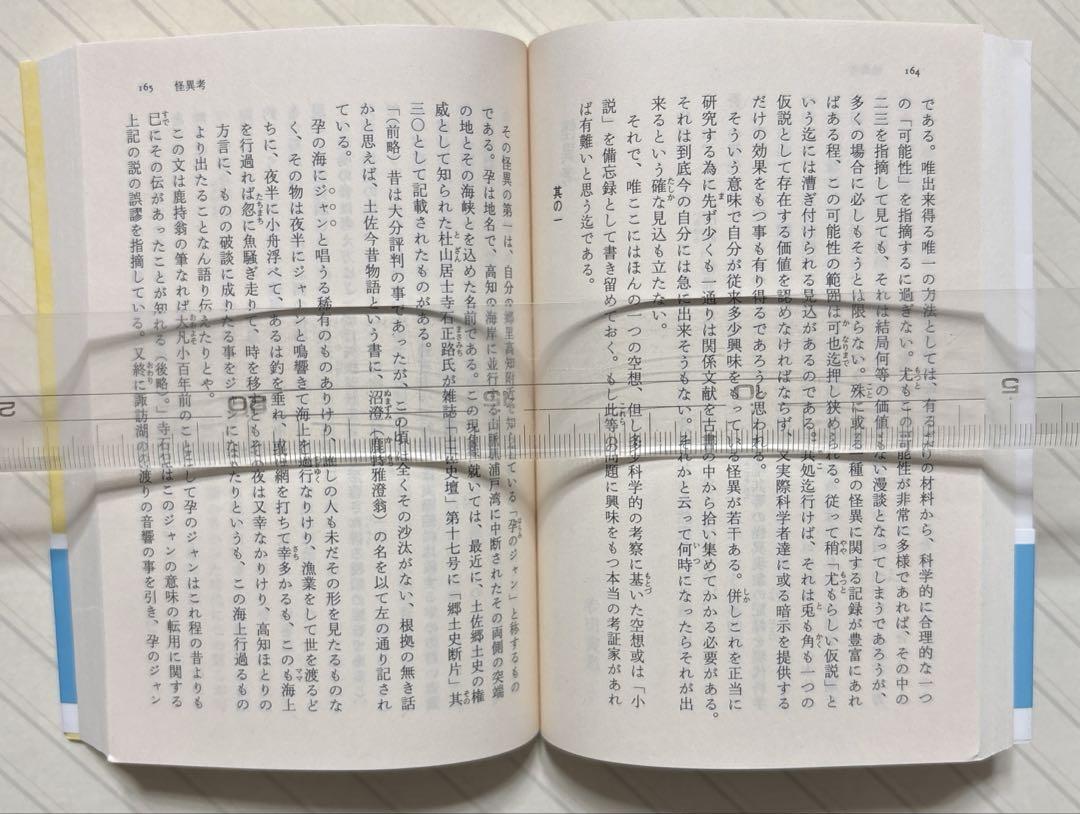 164
である。唯出来得る唯一の方法としては、有るだけの材料から、科学的に合理的な一つ
の「可能性」を指摘するに過ぎない。尤もこの可能性が非常に多様であれば、その中の
二三を指摘して見ても、それは結局何等の価値もない漫談となってしまうであろうが、
多くの場合に必しもそうとは限らない。殊に或る一種の怪異に関する記録が豊富にあれ
ばある程、この可能性の範囲は可也迄押し狭められる。従って稍「尤もらしい仮説」と
いう迄には漕ぎ付けられる見込があるのである。其処迄行けば、それは兎も角も一つの
仮説として存在する価値を認めなければならず、又実際科学者達に或る暗示を提供する
だけの効果をもつ事も有り得るであろうと思われる。
そういう意味で自分が従来多少興味をもっている怪異が若干ある。併しこれを正当に
研究する為に先ず少くも一通りは関係文献を古書の中から拾い集めてかかる必要がある。
それは到底今の自分には急に出来そうもない。それかと云って何時になったらそれが出
来るという確な見込も立たない。
それで、唯ここにはほんの一つの空想、但し多少科学的の考察に基いた空想或は「小
説」を備忘録として書き留めておく。もし此等の問題に興味をもつ本当の考証家があれ
ば有難いと思う迄である。
其の一
165 怪異考
その怪異の第一は、自分の郷里高知附近で知られている「孕のジャン」と称するもの
である。孕は地名で、高知の海岸に並行する山脈が浦戸湾に中断されたその両側の突端
の地とその海峡とを込めた名前である。この現象に就いては、最近に、土佐郷土史の権
威として知られた杜山居士寺石正路氏が雑誌「土佐史壇」第十七号に「郷土史断片」其
三〇として記載されたものがある。
「(前略)昔は大分評判の事であったが、この頃は全くその沙汰がない、根拠の無き話
かと思えば、土佐今昔物語という書に、沼澄(鹿持雅澄翁)の名を以て左の通り記され
ている。
孕の海にジャンと唱うる稀有のものありけり、誰しの人も未だその形を見たるものな
く、その物は夜半にジャーンと鳴響きて海上を過行なりけり、漁業をして世を渡るど
ちに、夜半に小舟浮べて、あるは釣を垂れ、或は網を打ちて幸多かるも、このも海上
を行過れば忽に魚騒ぎ走りて、時を移すともその夜は又幸なかりけり、高知ほとりの
方言に、ものの破談に成りたる事をジャンになりたりというも、この海上行過るもの
より出たることなん語り伝えたりとや。
この文は鹿持翁の筆なれば大凡小百年前のことにして孕のジャンはこれ程の昔よりも
已にその伝があったことが知れる(後略。)」寺石氏はこのジャンの意味の転用に関する
上記の説の誤謬を指摘している。又終に諏訪湖の氷渡りの音響の事を引き、孕のジャン